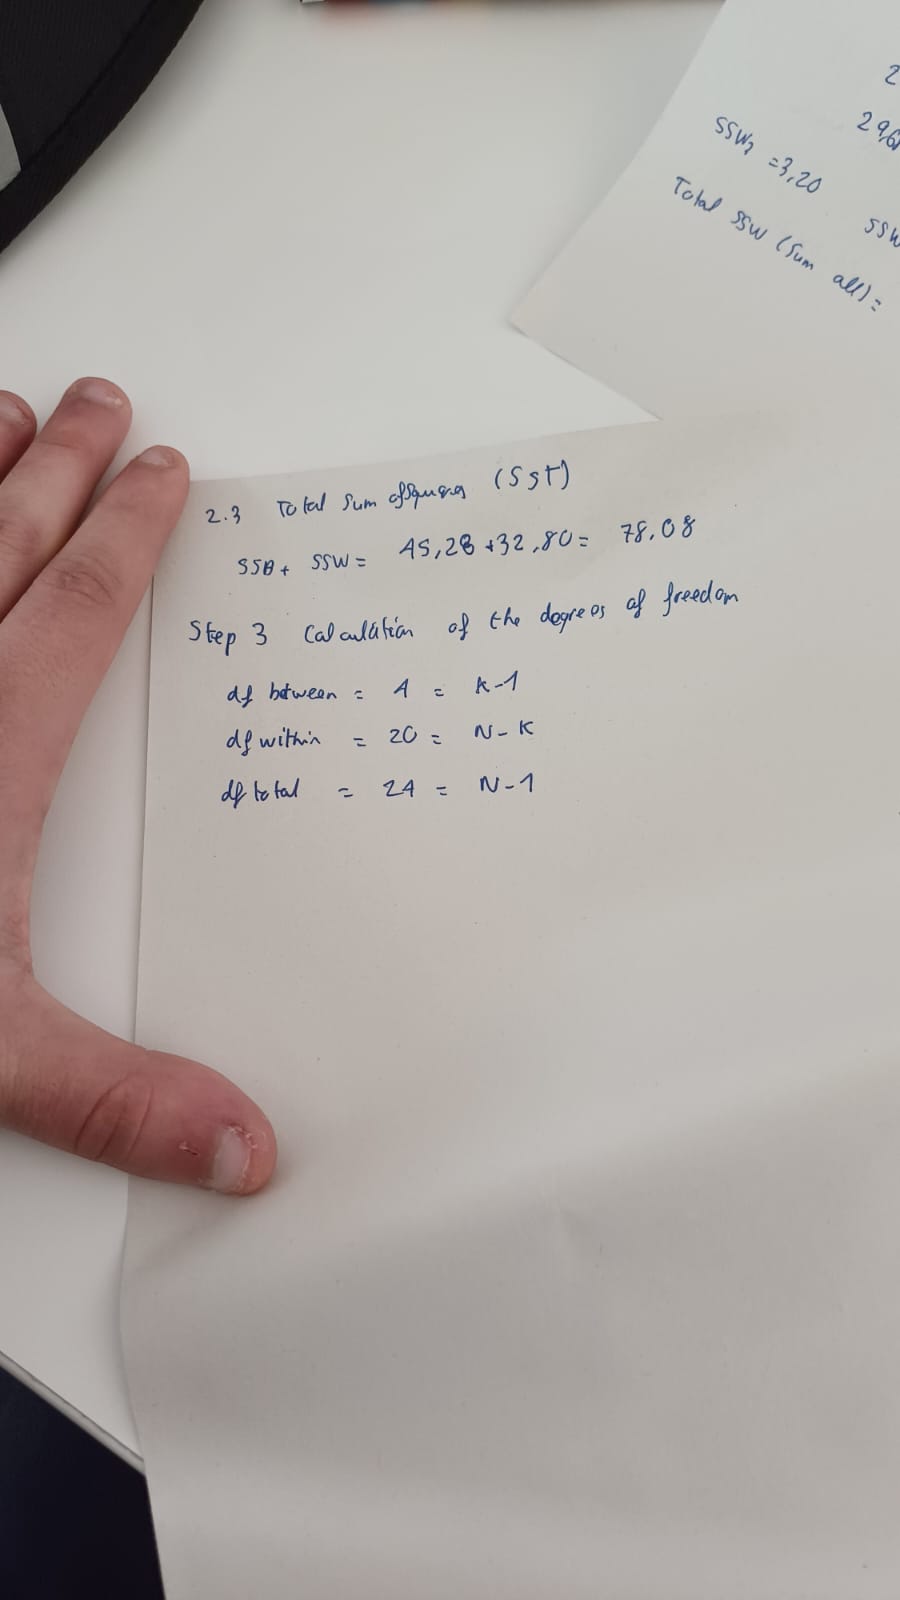 2
296
SSW₂ = 3,20
SSW
Total SSW (Sum all) =
2.3 Total Sum of Squares (SST)
SSB + SSW = 45,28 + 32,80 = 78,08
Step 3 Calculation of the degrees of freedom
df between = 4 = K-1
df within = 20 = N-K
df total = 24 = N-1